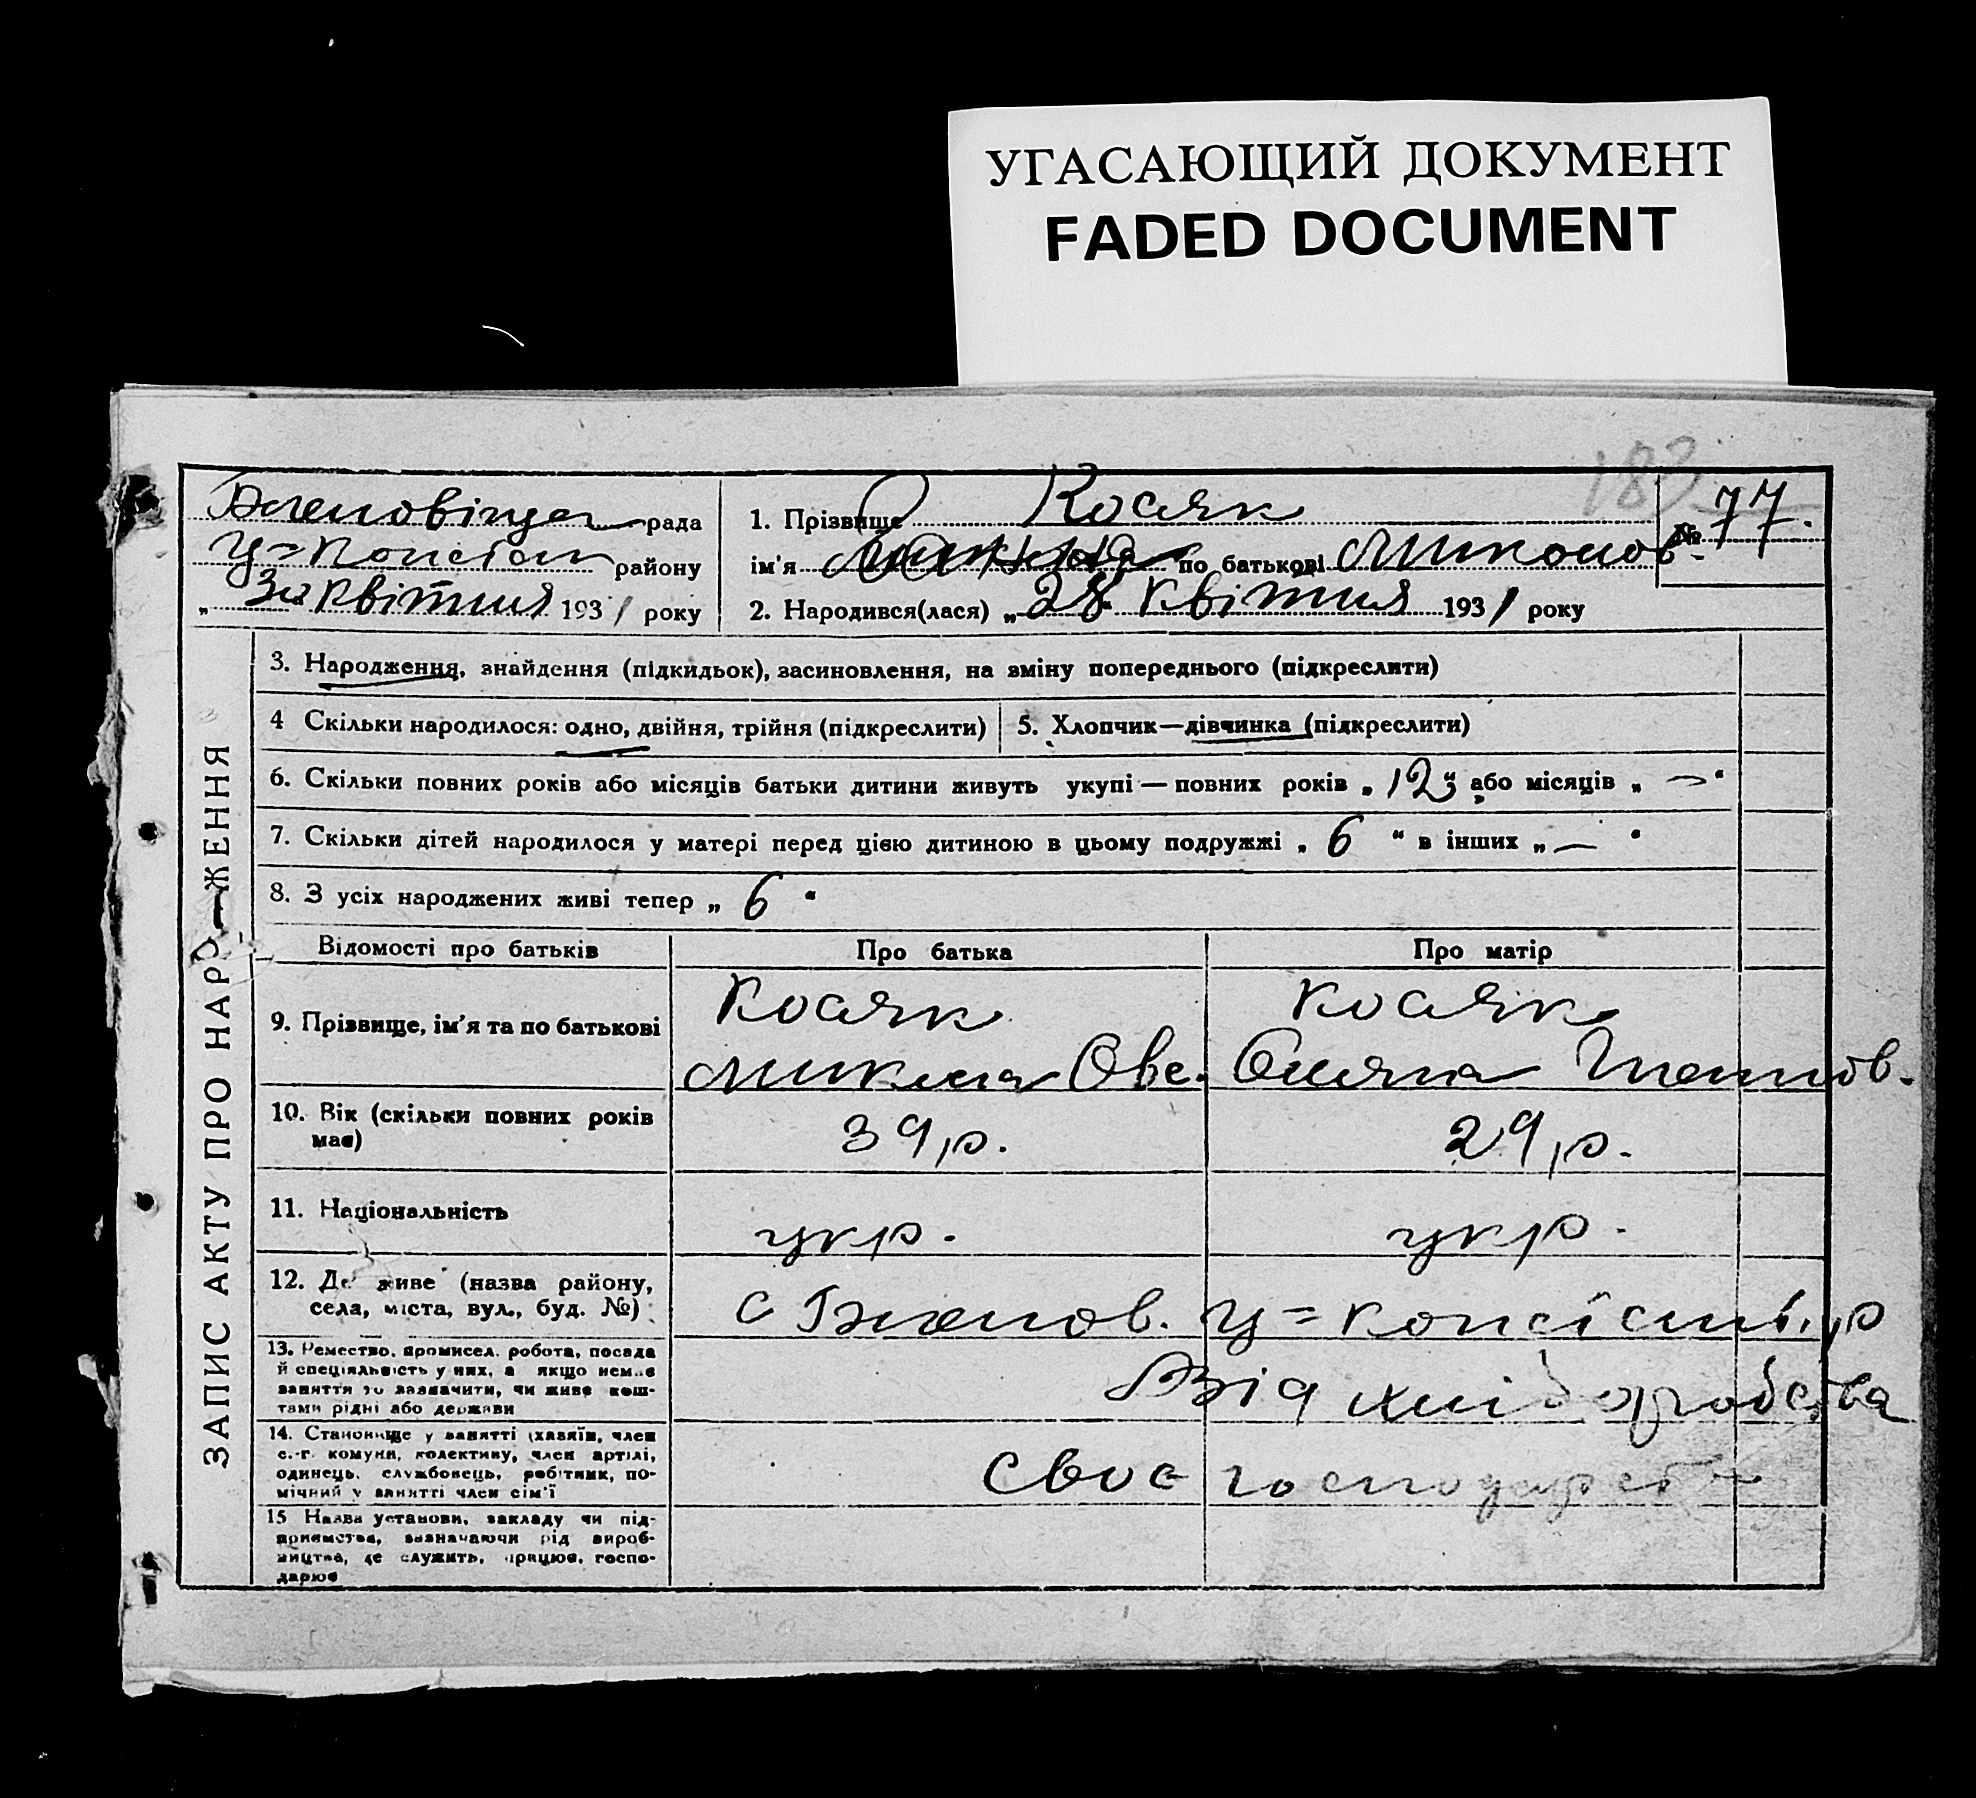 УГАСАЮЩИЙ ДОКУМЕНТ
FADED DOCUMENT
183
рада
району
„ 30 " Квітня 1931 року
1. Прізвище Косяк
ім'я по батькові Миколов-
№ 77.
2. Народився(лася) „ 28 " Квітня 1931 року
ЗАПИС АКТУ ПРО НАР ЖЕННЯ
3. Народження, знайдення (підкидьок), засиновлення, на зміну попереднього (підкреслити)
4 Скільки народилося: одно, двійня, трійня (підкреслити)
5. Хлопчик—дівчинка (підкреслити)
6. Скільки повних років або місяців батьки дитини живуть укупі — повних років „ 12 " або місяців „ — "
7. Скільки дітей народилося у матері перед цією дитиною в цьому подружжі „ 6 " в інших „ — "
8. З усіх народжених живі тепер „ 6 "
Відомості про батьків Про батька Про матір
9. Прізвище, ім'я та по батькові
Косяк
Микола Ове.
Косяк
10. Вік (скільки повних років має)
39 р. 29 р.
11. Національність
укр. укр.
12. Де живе (назва району,
села, міста, вул., буд. №)
13. Ремество, промисел, робота, посада
й спеціяльність у них, а якщо немає
заняття то зазначити, чи живе кош-
тами рідні або держави
Від хліборобства
14. Становище у занятті (хазяїн, член
с.-г. комуни, колективу, член артілі,
одинець, службовець, робітник, по-
мічний у занятті член сім'ї
своє господарст
15 Назва установи, закладу чи під-
приємства, зазначаючи рід вироб-
ництва, де служить, працює, госпо-
дарює